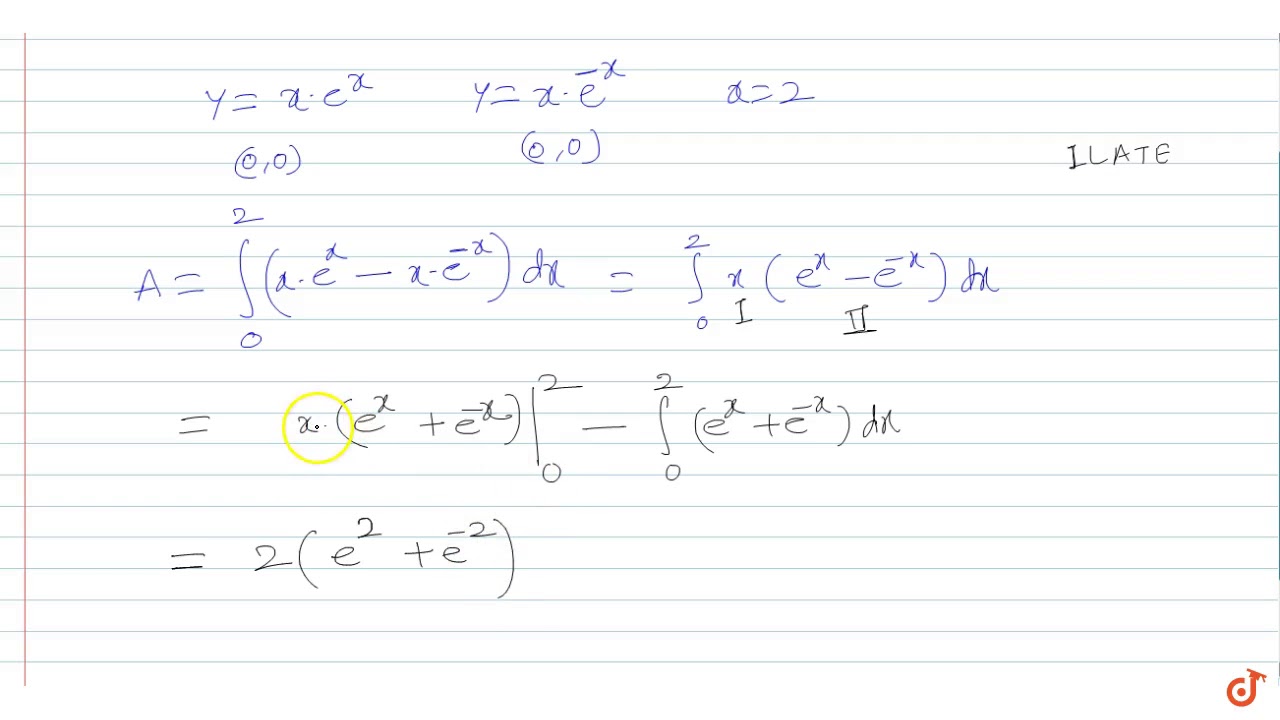 y = x·eˣ    y = x·e⁻ˣ    x = 2
(0,0)    (0,0)
ILATE
A = ∫₀² (x·eˣ − x·e⁻ˣ) dx = ∫₀² x (eˣ − e⁻ˣ) dx
I    II
= x·(eˣ + e⁻ˣ)|₀² − ∫₀² (eˣ + e⁻ˣ) dx
= 2(e² + e⁻²)